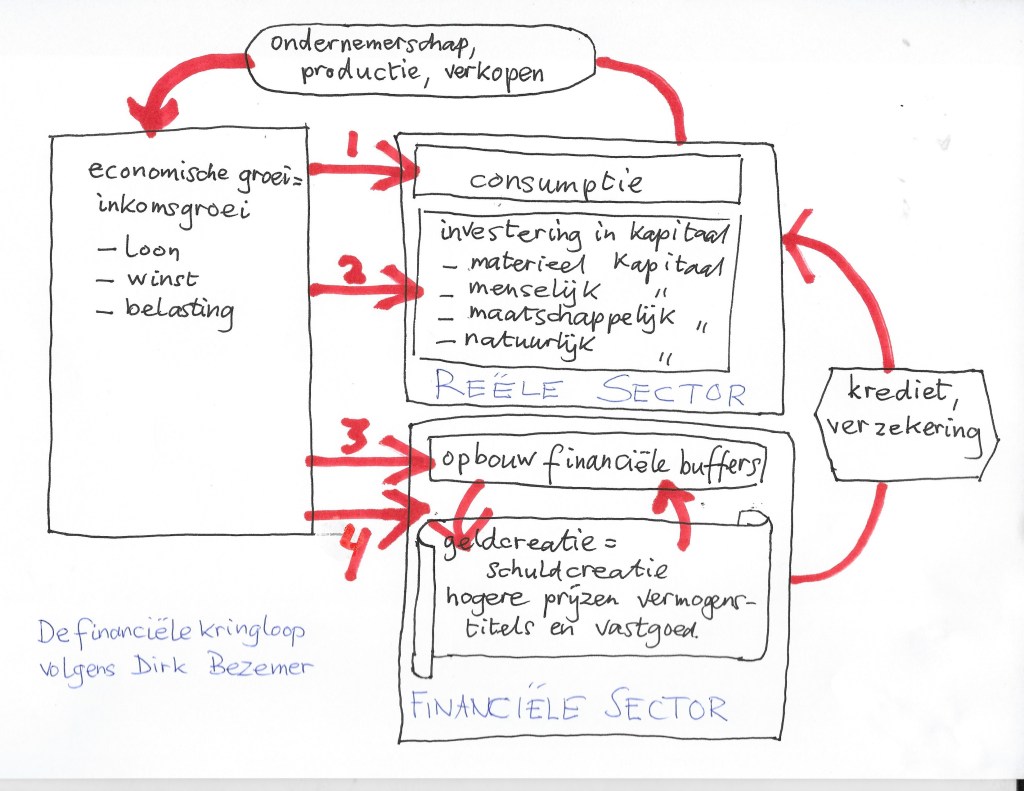 ondernemerschap,
productie, verkopen
economische groei=
inkomsgroei
- Loon
- winst
- belasting
1
2
3
4
consumptie
investering in kapitaal
- materieel kapitaal
- menselijk "
- maatschappelijk "
- natuurlijk "
REËLE SECTOR
krediet,
verzekering
opbouw financiële buffers
geldcreatie =
schuldcreatie
hogere prijzen vermogens-
titels en vastgoed.
FINANCIËLE SECTOR
De financiële kringloop
volgens Dirk Bezemer